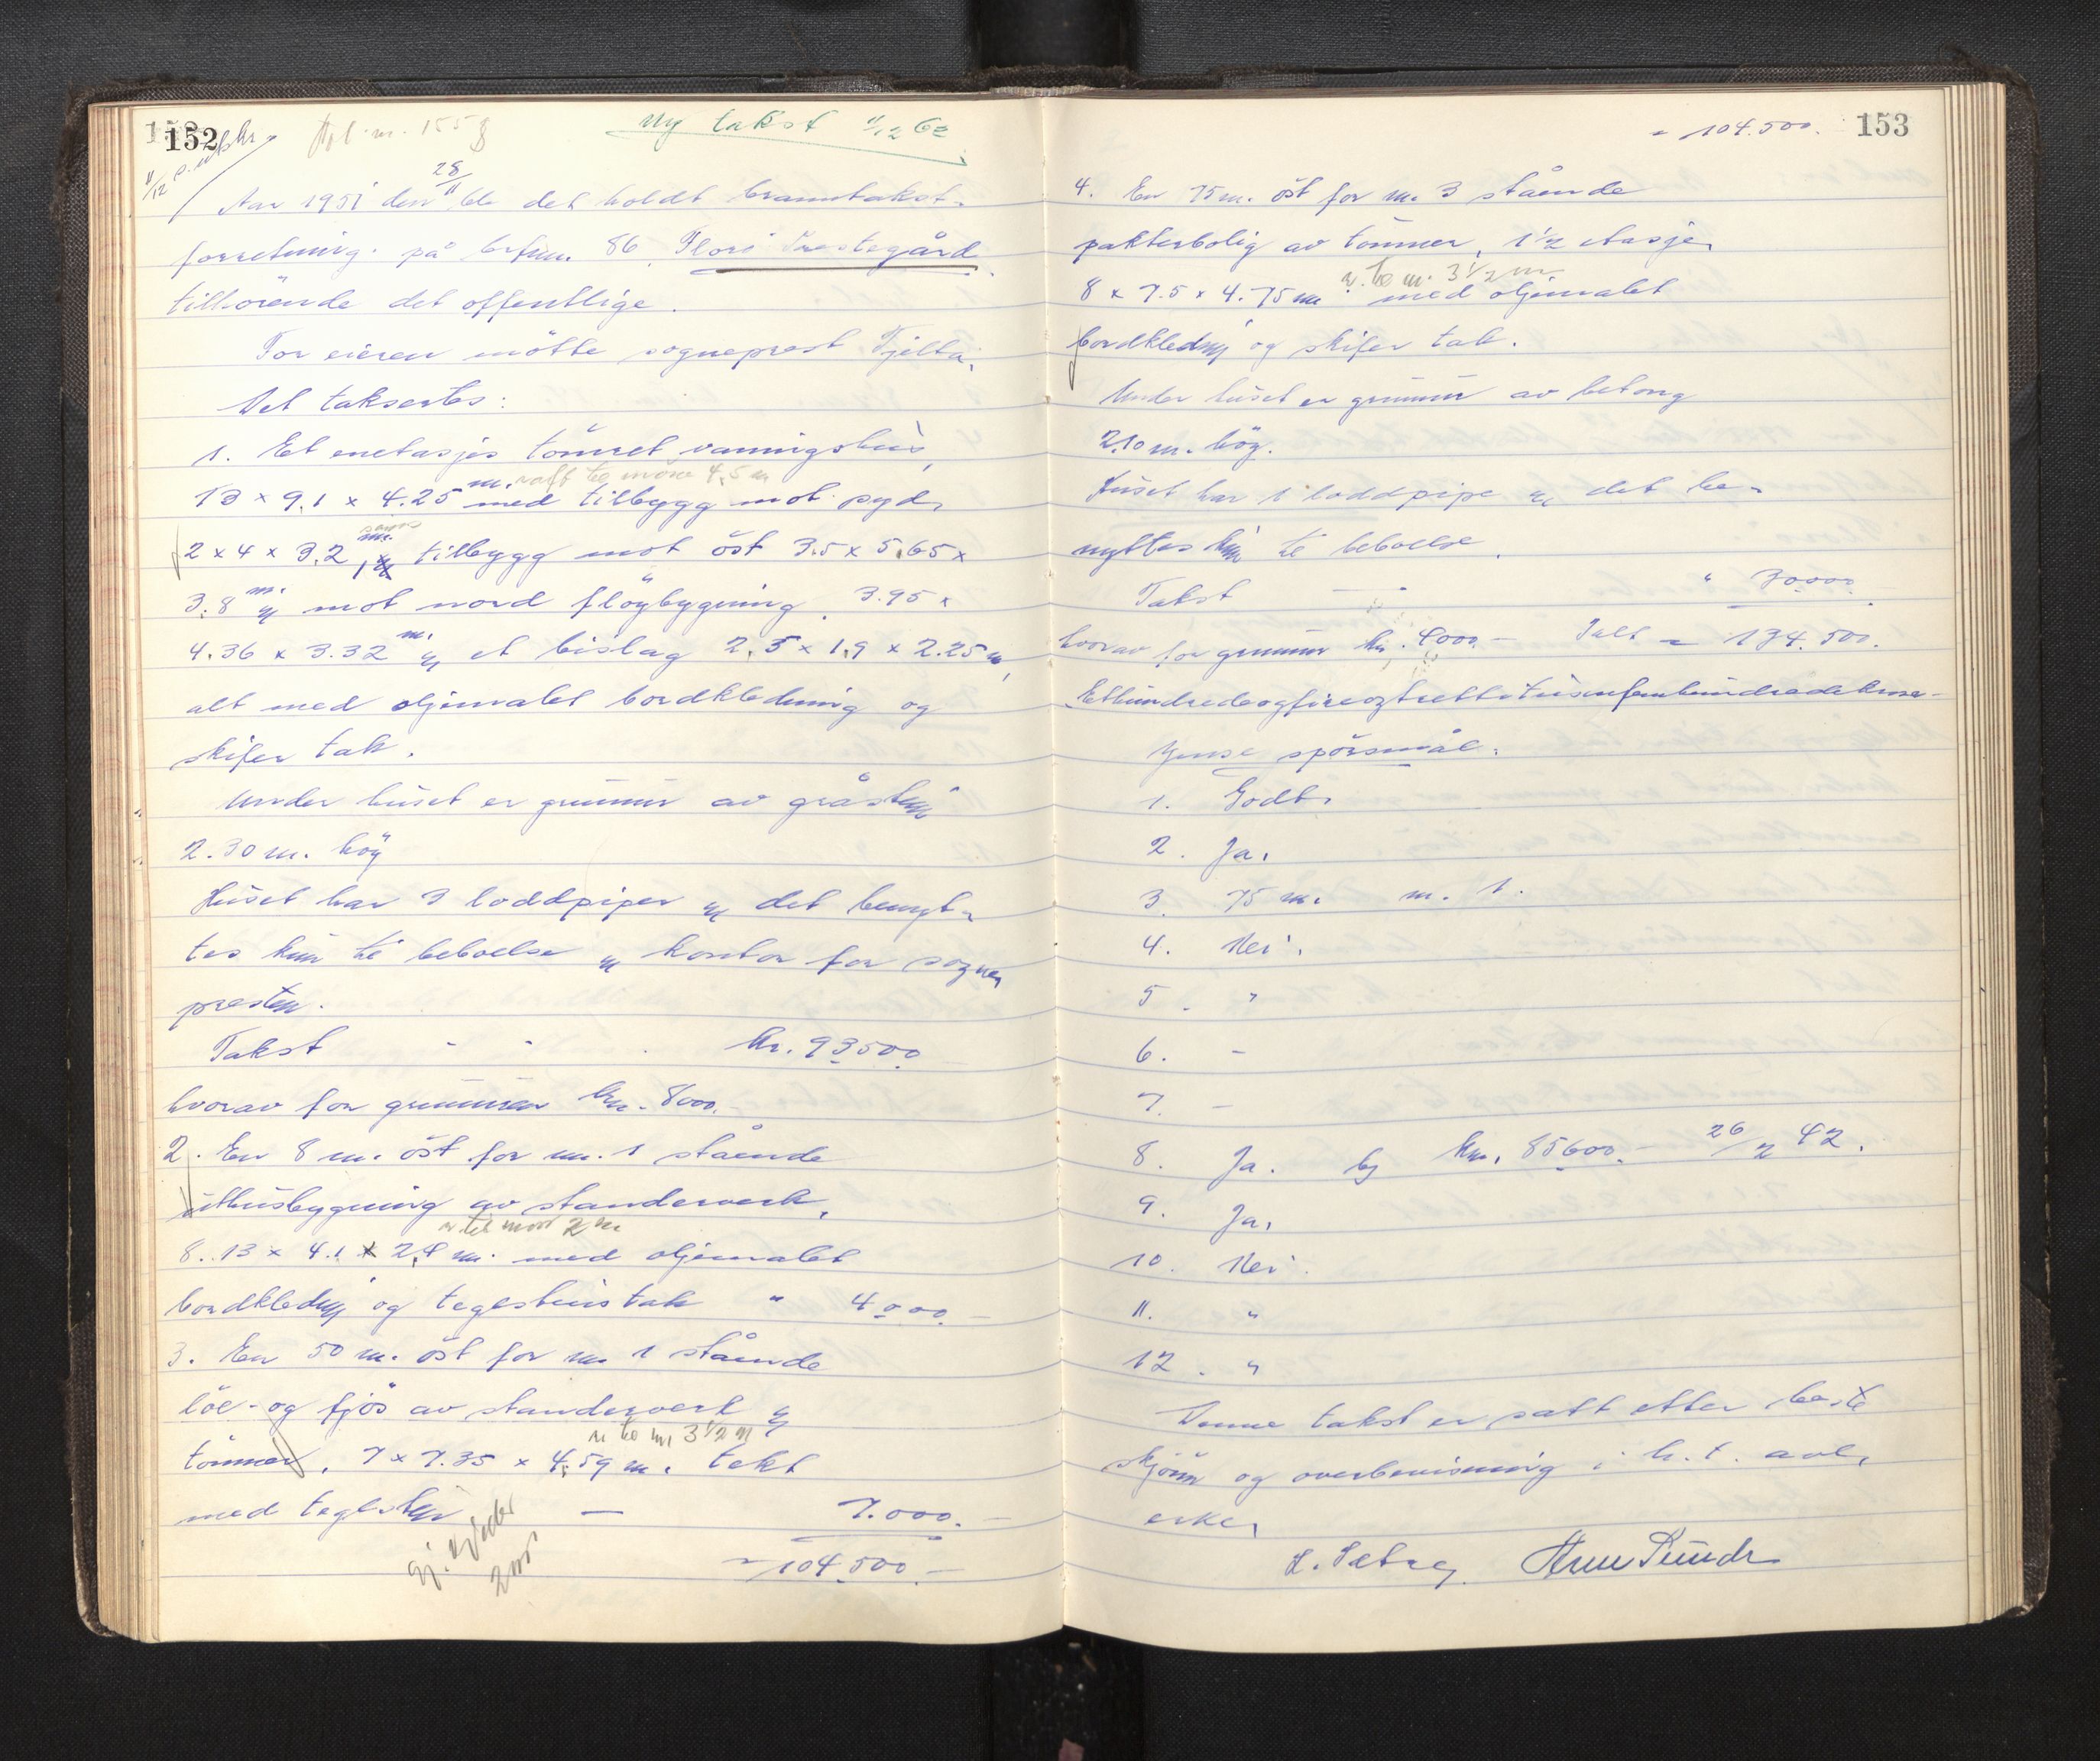 152
Ny takst 1/12 62
Aar 1951 den 28/11 ble det holdt branntakst-
forretning på brfnr. 86, Florö Prestegård
tilhörende det offentlige.
For eieren mötte sogneprest Fjelltu.
Det taksertes:
1. Et enetasjes tömret vaaningshus,
m. målt til möne 4,5 m
13 x 9,1 x 4.25 med tilbygg mot syd,
2 x 4 x 3,2 m., tilbygg mot öst 3.5 x 5,65 x
3.8 m. og mot nord flöybygning, 3.95 x
4.36 x 3.32 m. og et bislag 2,5 x 1,9 x 2.25 m,
alt med oljemalet bordkledning og
skifer tak.
Under huset er grunmur av gråstein
2.30 m. höy
Huset har 3 loddpiper og det benyt-
tes kun til beboelse og kontor for sogne-
presten.
Takst - - . kr. 93500
hvorav for grunmuren kr. 8000.-
2. En 8 m. öst for nr. 1 stående
uthusbygning av standerverk,
til möne 2 m
8.13 x 4.1 x 2,4 m. med oljemalet
bordkledning og teglsteins tak " 4000.-
3. En 50 m. öst for nr. 1 stående
löe- og fjös av standerverk og
3 1/2 m
tömmer, 7 x 7.35 x 4,59 m. tekt
med teglstein — 7.000.-
104.500.-
153
104.500.
4. En 75 m. öst for nr. 3 stående
pakterbolig av tömmer, 1 1/2 etasjer
3 1/2 m.
8 x 7.5 x 4.75 m med oljemalet
bordkledning og skifer tak.
Under huset er grunmur av betong
2,10 m. höy.
Huset har 1 loddpipe og det be-
nyttes kun til beboelse.
Takst — - " 30000
hvorav for grunmur kr. 4000.- Ialt = 134.500.
Etthundredeogfireogtrettitusenfemhundredekroner-
Gense spörsmål:
1. Godt.
2. Ja.
3. 75 m. nr. 1.
4. Nei.
5. "
6. -
7. -
8. Ja. kr. 85600.- 26/2 42.
9. Ja.
10. Nei.
11. "
12. "
Denne takst er satt etter beste
skjönn og overbevisning i h.t.
L. Sætre